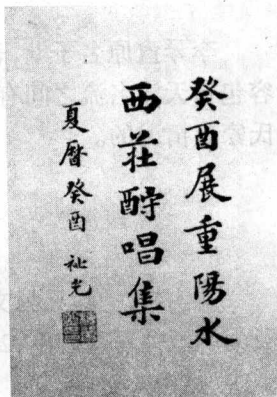 癸酉展重陽水
西莊酬唱集
夏曆癸酉 祉光